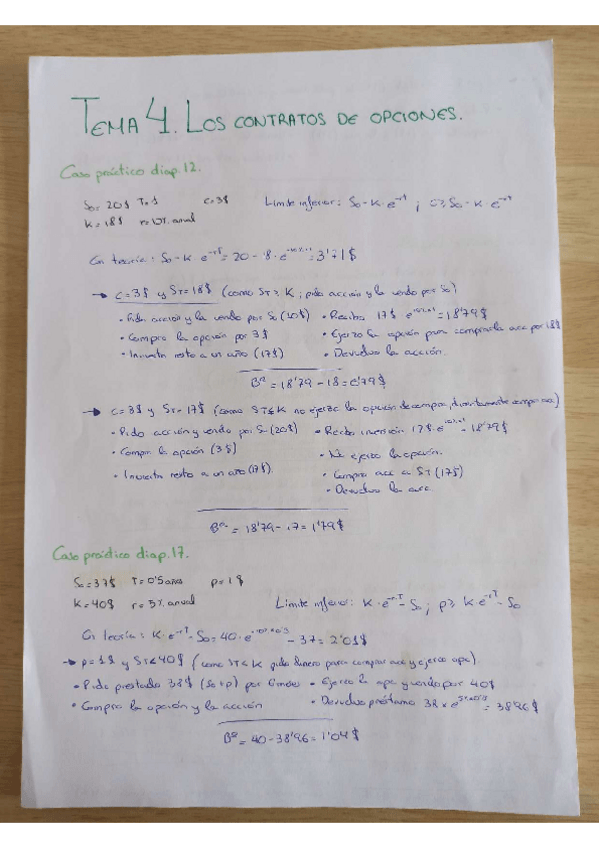 TEMA 4. LOS CONTRATOS DE OPCIONES.
Caso práctico diap.12.
S₀= 20$ T=1 c=3$ Límite inferior: S₀-K·e^-rT ; c≥S₀-K·e^-rT
K=18$ r=10% anual
En teoría: S₀-K·e^-rT = 20-18·e = 3'71$
→ c=3$ y ST=18$ (como ST≥K, pido acción y la vendo por S₀)
· Pido acción y la vendo por S₀ (20$) · Recibo 17$·e = 18'79$
· Compro la opción por 3$ · Ejerzo la opción para comprar la acc por 18$
· Invierto resto a un año (17$) · Devuelvo la acción.
Bº = 18'79-18=0'79$
→ c=3$ y ST=17$ (como ST≤K no ejerzo la opción de compra, directamente compro acc)
· Pido acción y vendo por S₀ (20$) · Recibo inversión 17$·e = 18'79$
· Compro la opción (3$) · No ejerzo la opción.
· Invierto resto a un año (17$). · Compro acc a ST (17$)
· Devuelvo la acc.
Bº = 18'79-17=1'79$
Caso práctico diap.17.
S₀=37$ T=0'5 años p=1$
K=40$ r=5% anual Límite inferior: K·e^-rT-S₀; p≥K·e^-rT-S₀
En teoría: K·e^-rT-S₀=40·e -37=2'01$
→ p=1$ y ST≤40$ (como ST≤K pido dinero para comprar acc y ejerzo opc)
· Pido prestado 38$ (S₀+p) por 6 meses · Ejerzo la opc y vendo por 40$
· Compro la opción y la acción · Devuelvo préstamo 38×e = 38'96$
Bº = 40-38'96=1'04$